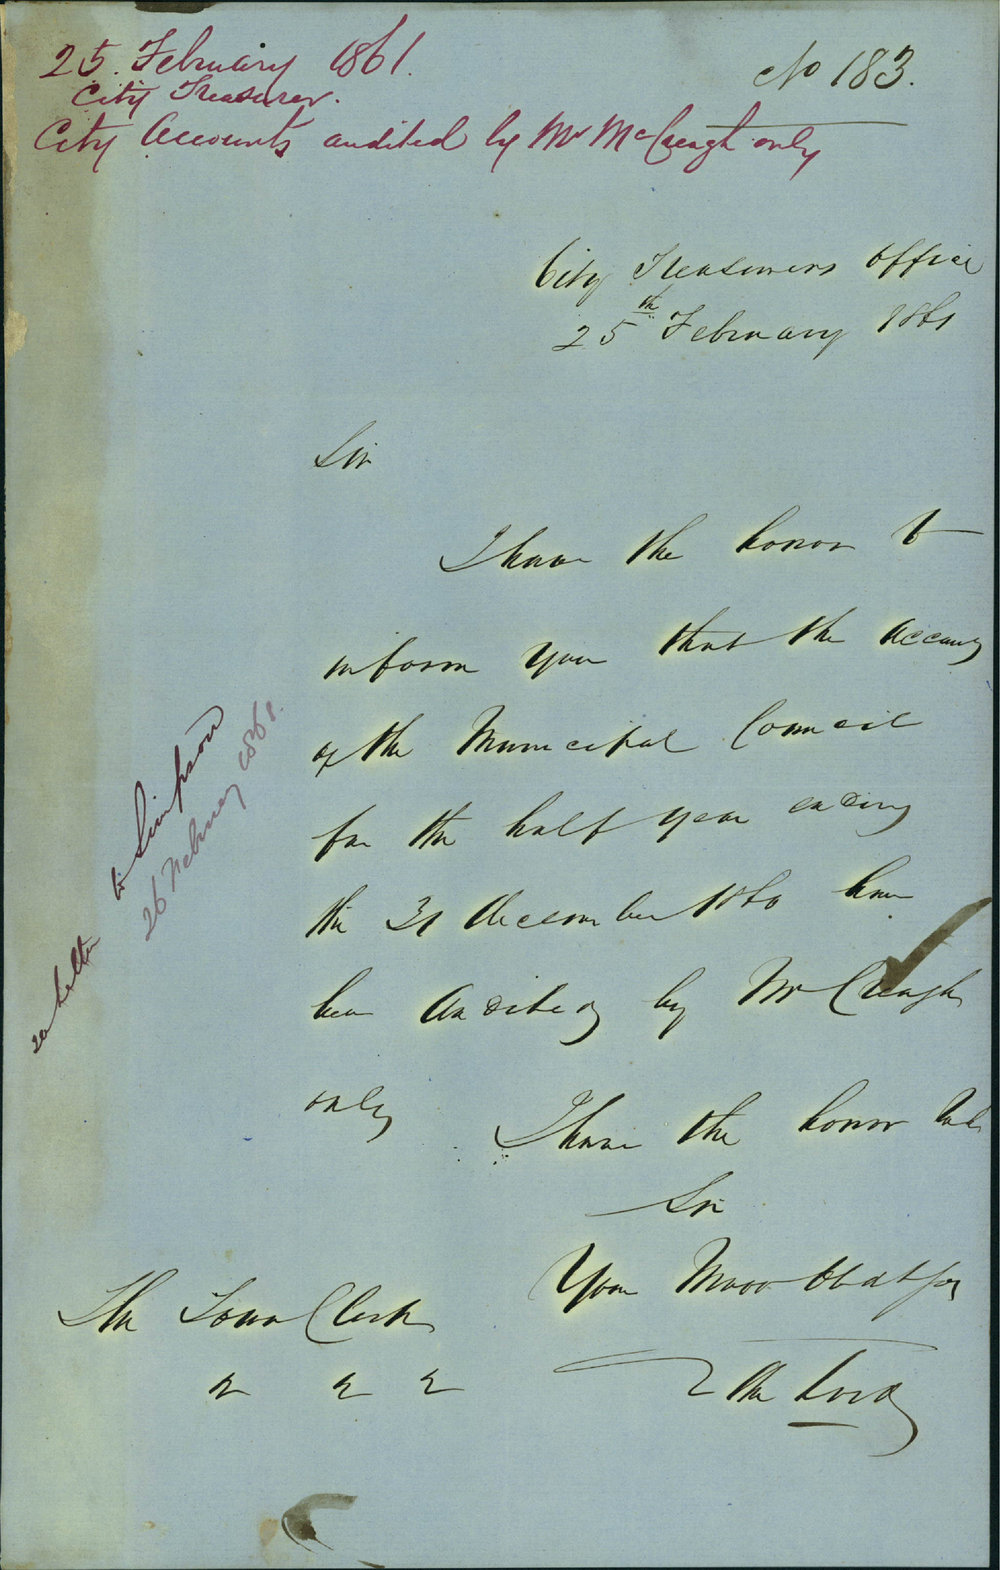 25. February 1861.
City Treasurer.
No 183.
City Accounts audited by Mr McCreagh only
City Treasurers Office
25th February 1861
Sir
I have the honor to
inform you that the Accounts
of the Municipal Council
for the half year ending
the 31 December 1860 have
been Audited by Mr Creagh
only
I have the honor to be
Sir
Your Most Obdt Ser
The Town Clerk
letter to Simpson
26 February 1861.